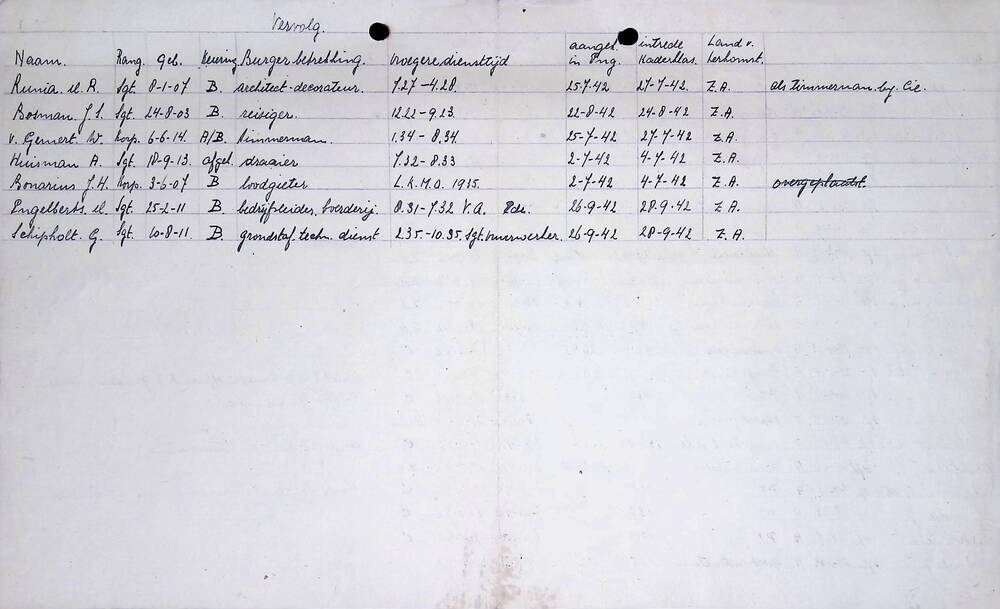 Vervolg.
Naam. Rang. Geb. Keuring. Burger betrekking. vroegere diensttijd aangek. in Eng. intrede Kaderklas. Land v. herkomst.
Runia R. Sgt. 8-1-07 B. architect-decorateur. 7.27 – 4.28. 25-7-42 27-7-42. Z.A. als timmerman by. Cie.
Bosman J.S. Sgt. 24-8-03 B. reisiger. 12.22 – 9.23. 22-8-42 24-8-42 Z.A.
v. Gemert. W. Korp. 6-6-14. A/B. timmerman. 1.34 – 8.34. 25-7-42 27-7-42 Z.A.
Huisman A. Sgt. 18-9-13. afgek. draaier 7.32 – 8.33 2-7-42 4-7-42 Z.A.
Bonarius J.H. Korp. 3-6-07 B loodgieter L.K.M.O. 1915. 2-7-42 4-7-42 Z.A. overgeplaatst.
Engelberts. Sgt. 25-2-11 B. bedrijfsleider boerderij. 8.31 – 7.32 V.A. 26-9-42 28-9-42 Z.A.
Schipholt. G. Sgt. 10-8-11. B. grondstaf techn. dienst 2.35. – 10.35. Sgt. vuurwerker. 26-9-42 28-9-42 Z.A.